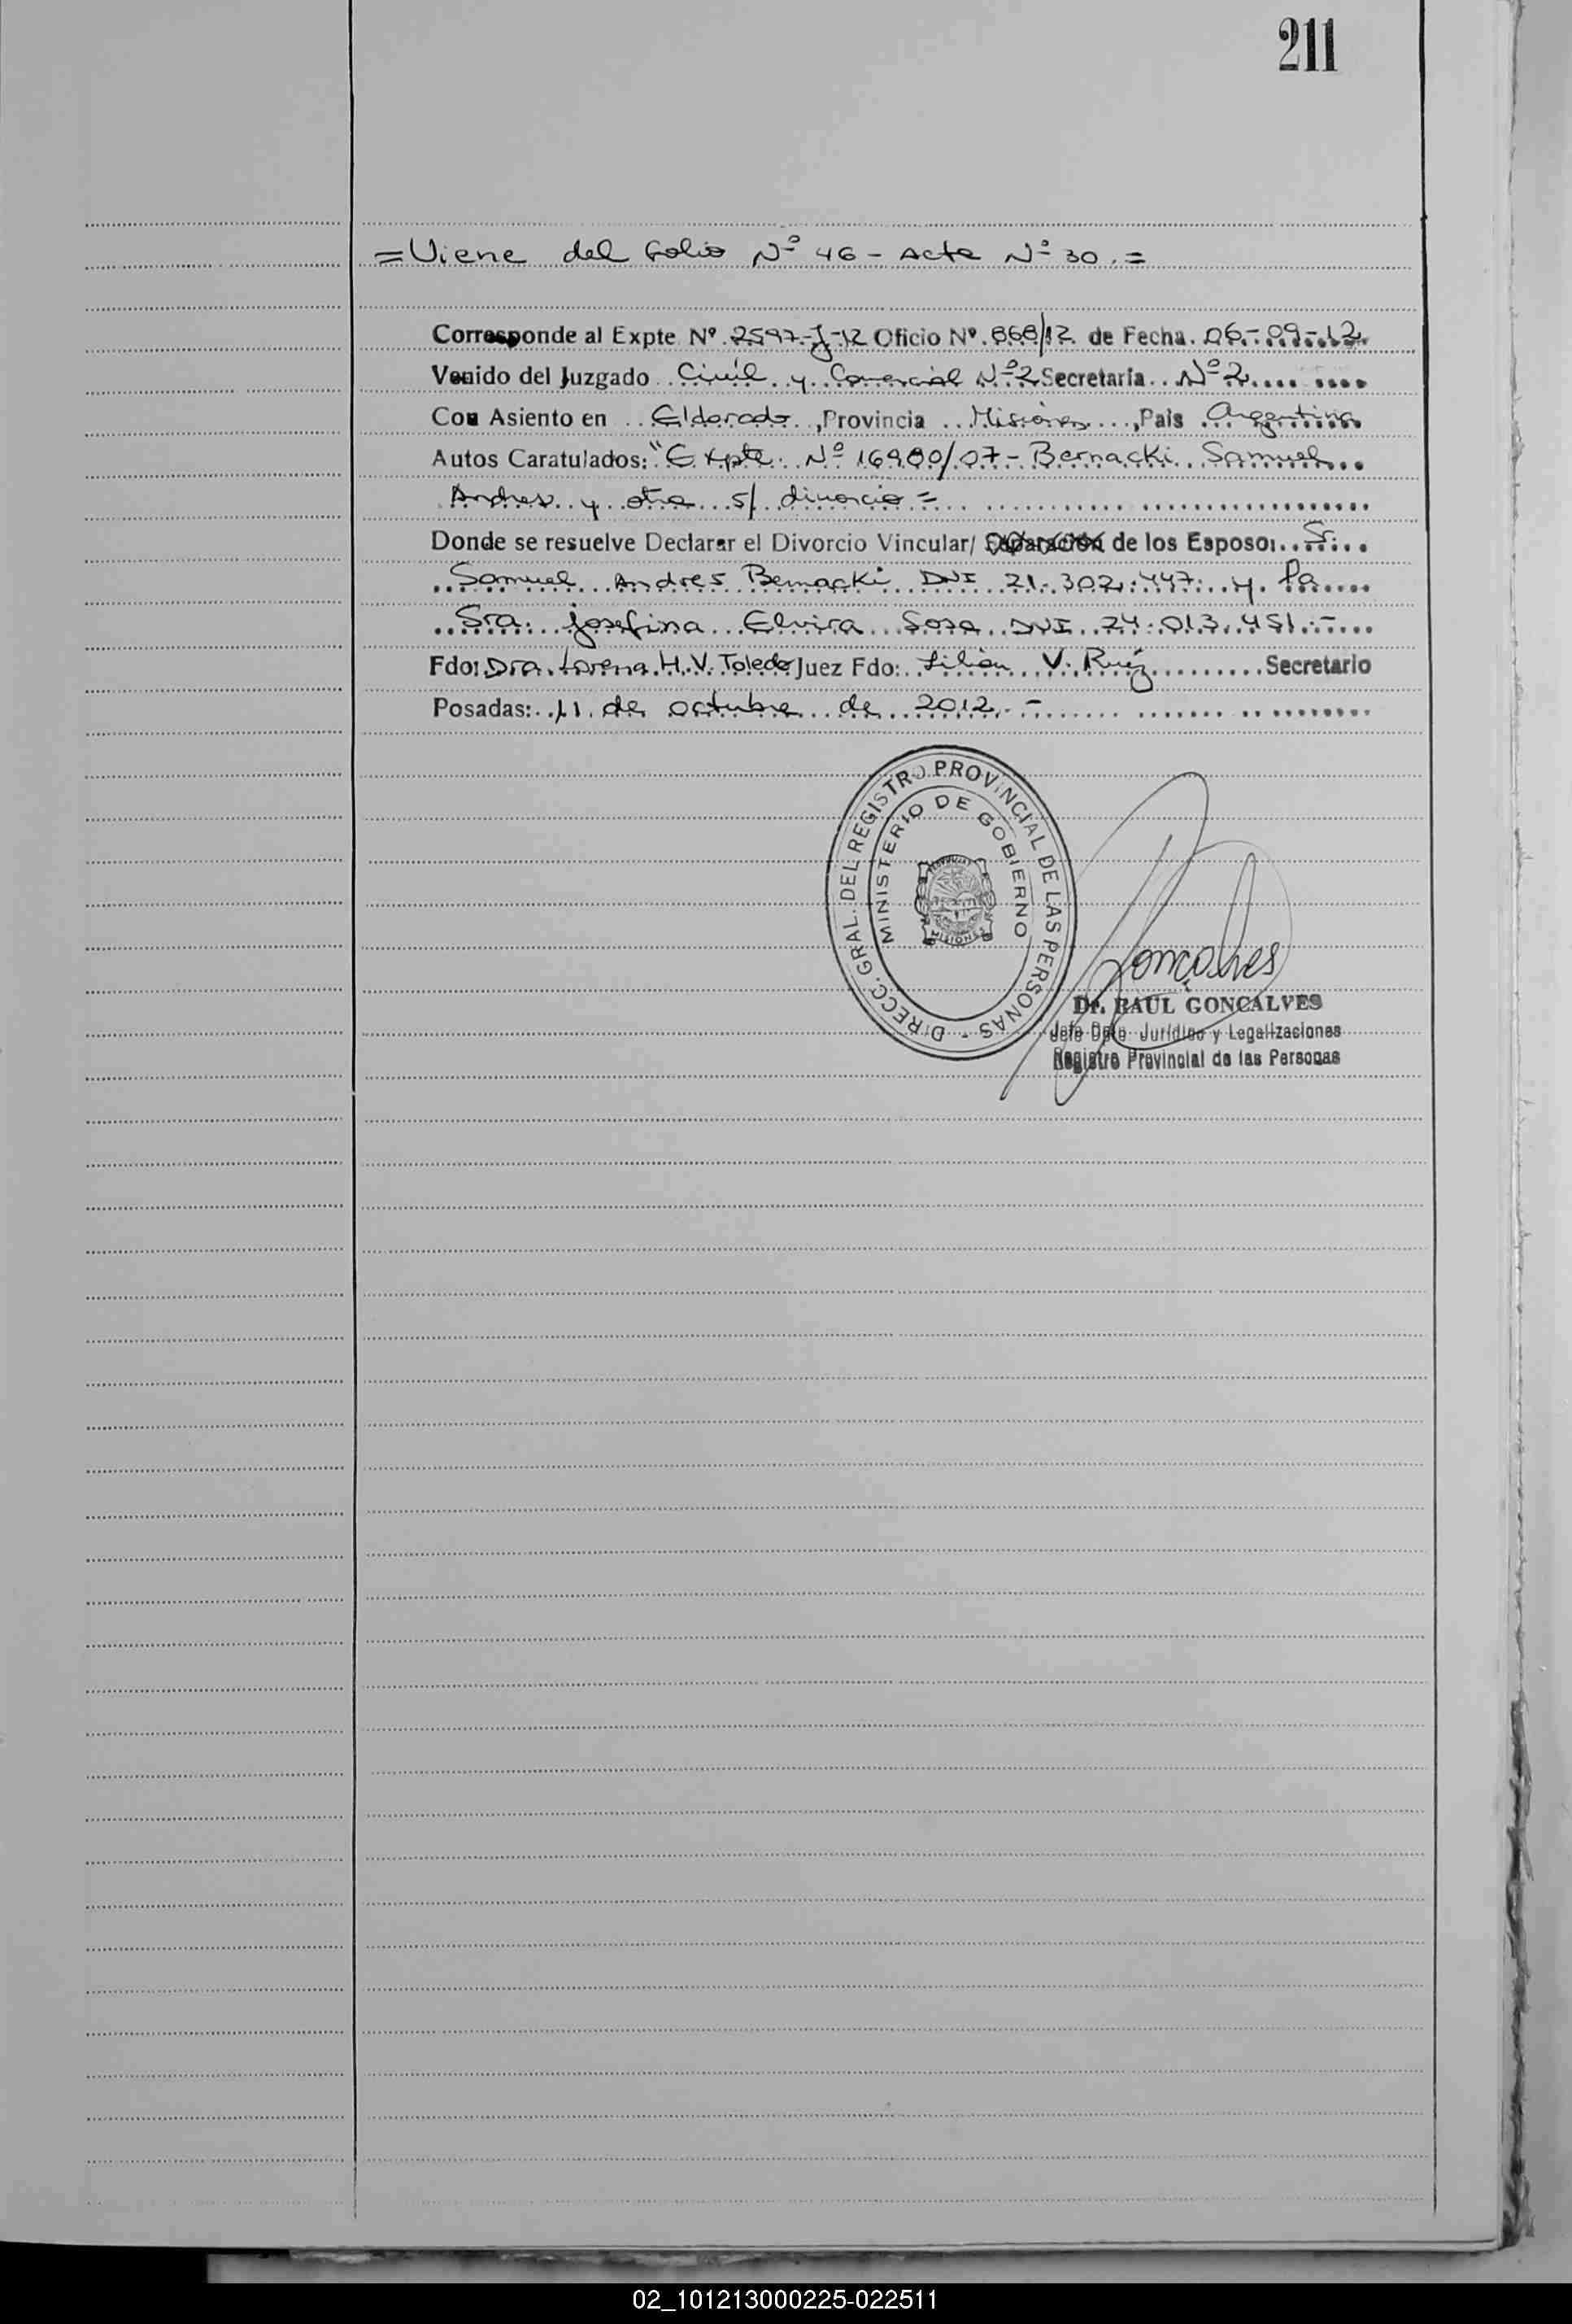 211
=Viene del folio Nº 46 - Acta Nº 30.=
Corresponde al Expte Nº 2597-J-12 Oficio Nº 868/12 de Fecha 06-09-12
Venido del Juzgado Civil y Comercial Nº2 Secretaría Nº 2
Con Asiento en Eldorado, Provincia Misiones, Pais Argentina
Autos Caratulados: "Expte. Nº 16980/07 - Bernacki Samuel
Andres y otra s/ divorcio =
Donde se resuelve Declarar el Divorcio Vincular/ Separación de los Esposos Sr.
Samuel Andres Bernacki DNI 21.302.447 y la
Sra. Josefina Elvira Sosa DNI 24.013.451.-
Fdo: Dra. Lorena H.V. Toledo Juez Fdo: Lilian V. Ruíz Secretario
Posadas: 11 de octubre de 2012.-
DIRECC. GRAL. DEL REGISTRO PROVINCIAL DE LAS PERSONAS -
MINISTERIO DE GOBIERNO
MISIONES
Gonçalves
Dr. RAUL GONCALVES
Jefe Dpto. Jurídico y Legalizaciones
Registro Provincial de las Personas
02_101213000225-022511